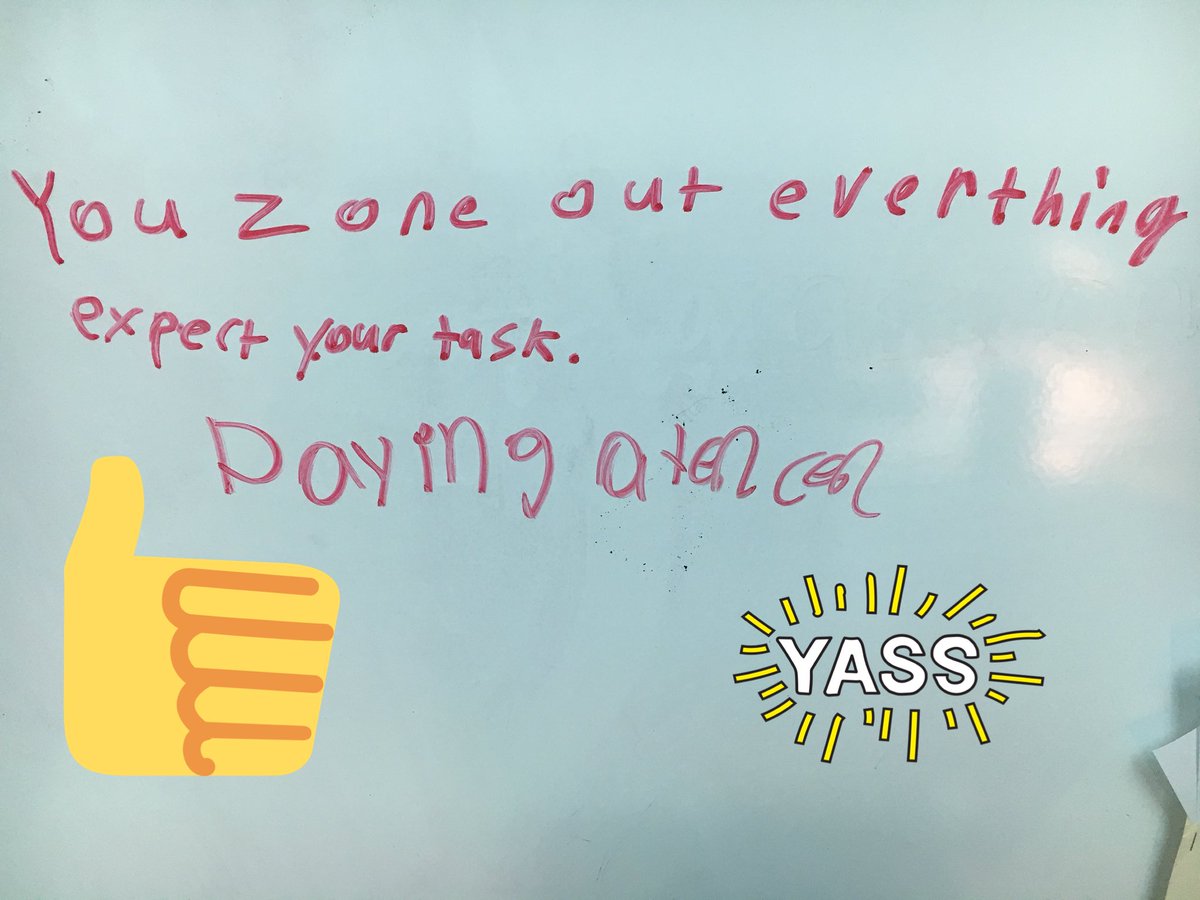 You zone out everthing
expert your task.
Paying atencen
YASS